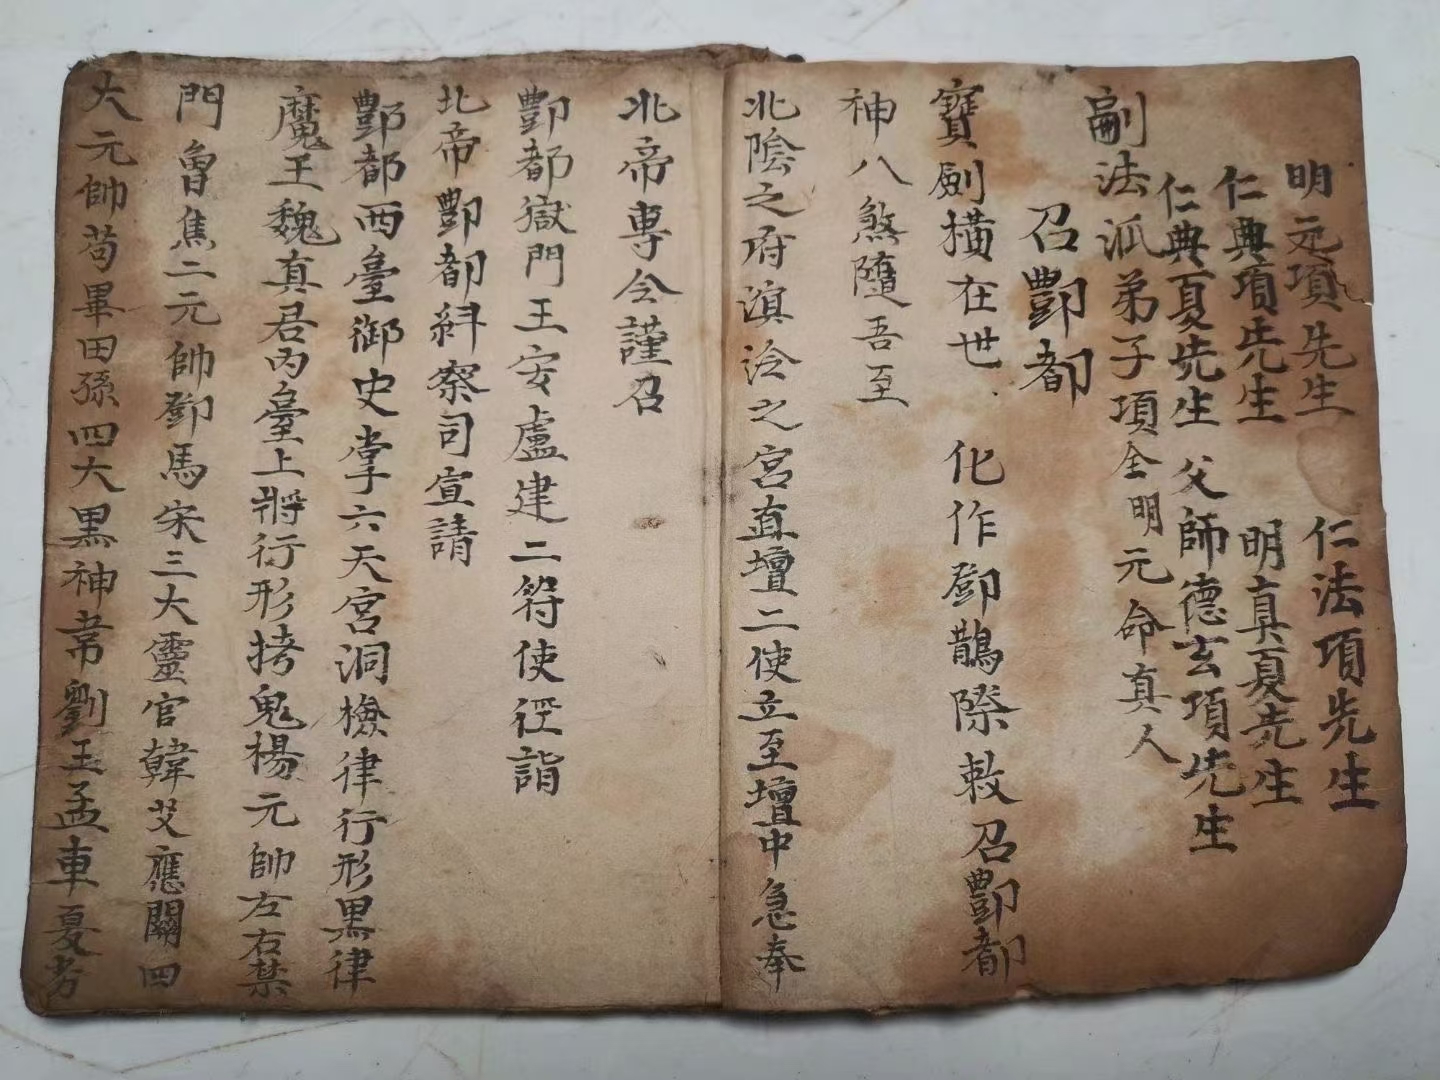 明元項先生　仁法項先生
仁典項先生　明真夏先生
仁典夏先生　父師德玄項先生
副法派弟子項全明元命真人
召酆都
寶劍橫在世　化作鄧鵲際敕召酆都
神八煞隨吾至
北陰之府滇泠之宮直壇二使立至壇中急奉
北帝專令謹召
酆都獄門王安盧建二符使徑詣
北帝酆都糾察司宣請
酆都西臺御史掌六天宮洞檢律行形黑律
魔王魏真君內臺上將行形拷鬼楊元帥左右禁
門魯焦二元帥鄧馬宋三大靈官韓艾應關四
大元帥苟畢田孫四大黑神韋劉王孟車夏